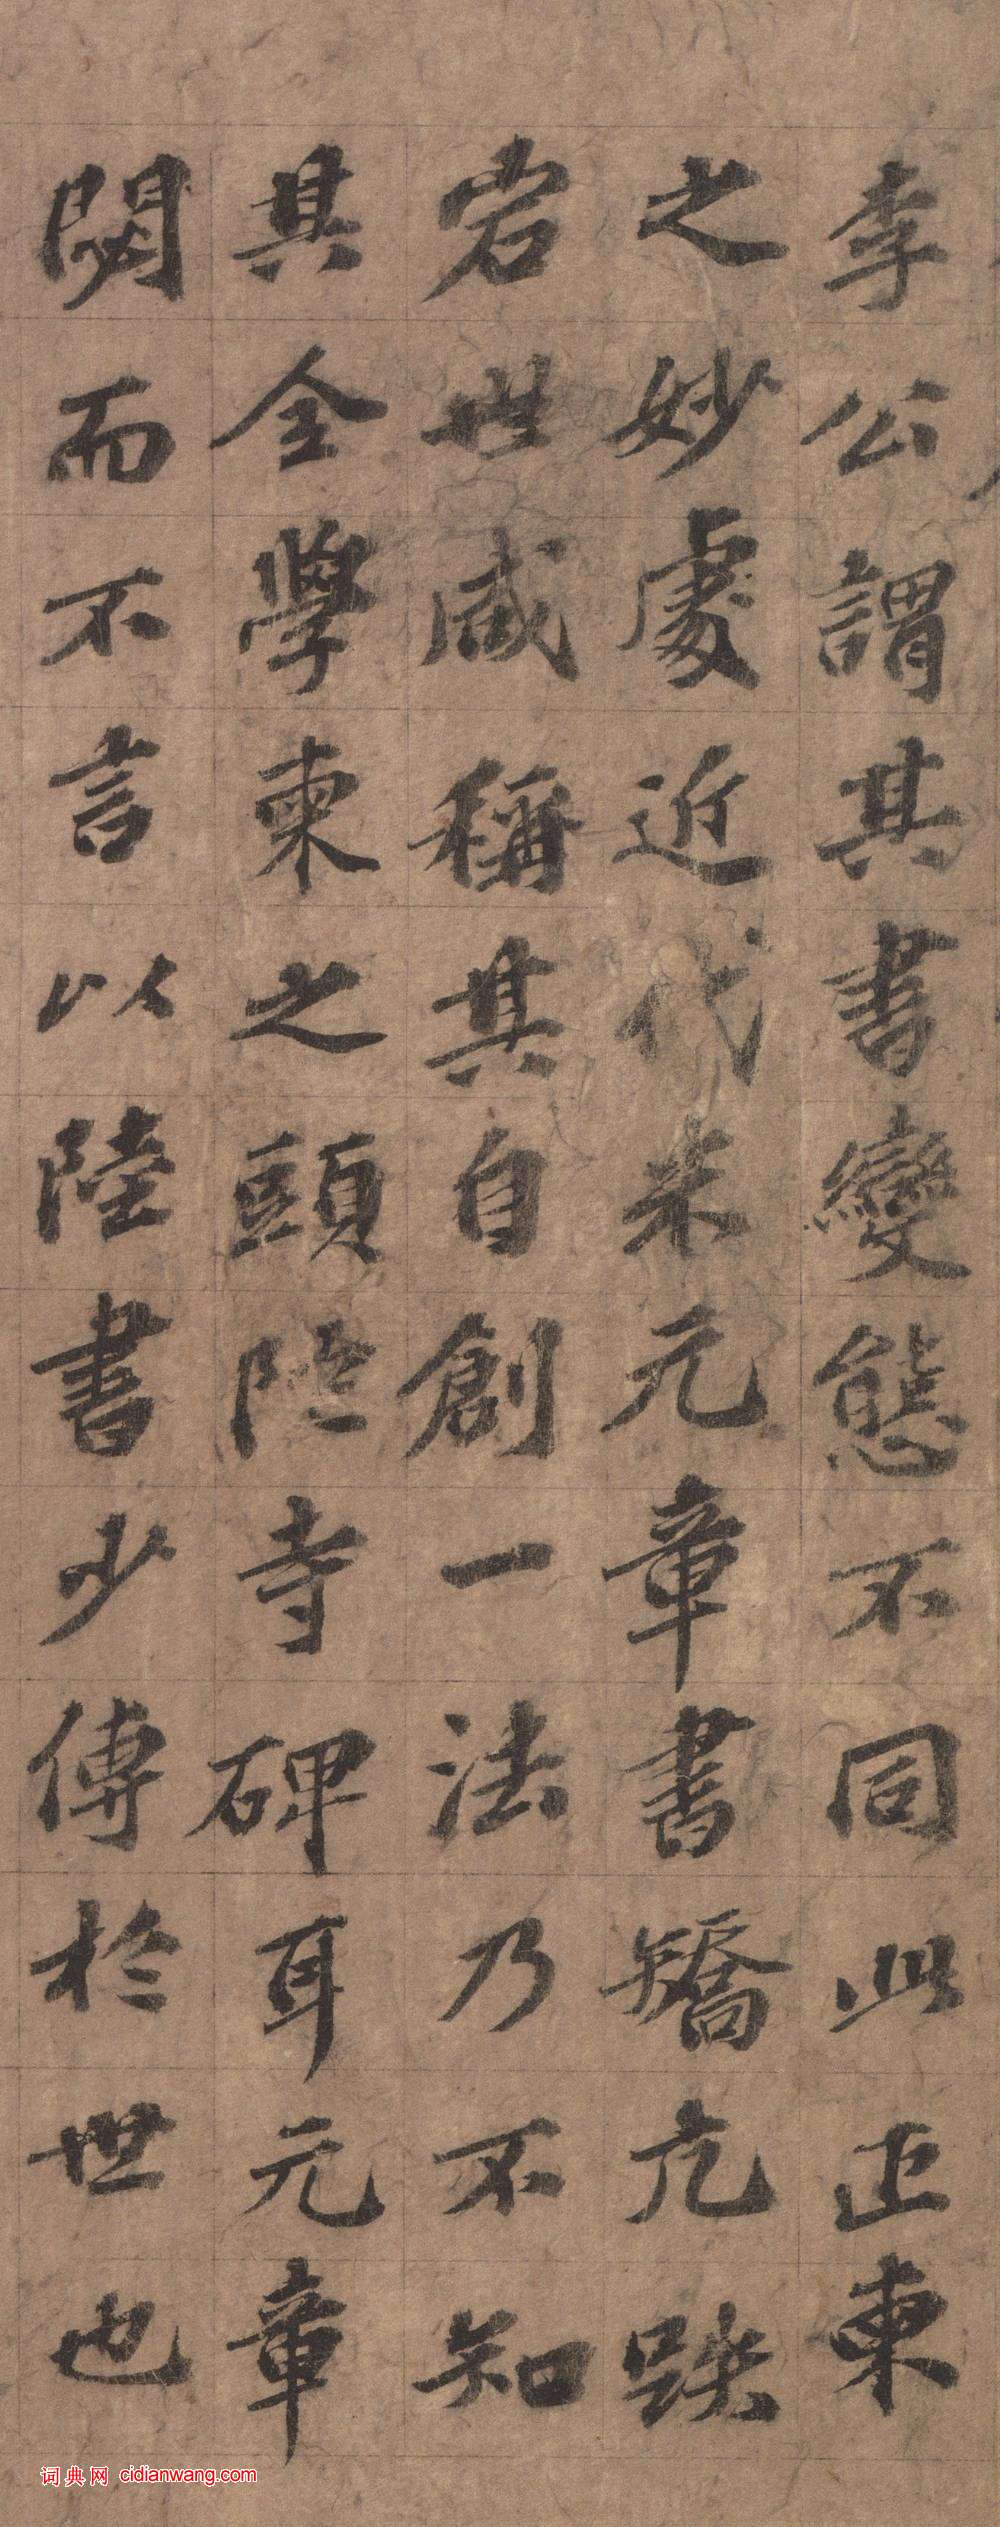 李公謂其書變態不同此正柬
之妙處近代米元章書矯亢跌
宕世咸稱其自創一法乃不知
其全學柬之頭陁寺碑耳元章
閟而不言以陸書少傳於世也
词典网 cidianwang.com